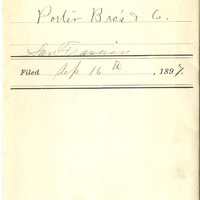 Porter Bro's & Co.
San Francisco
Filed Sep 16th, 1897.